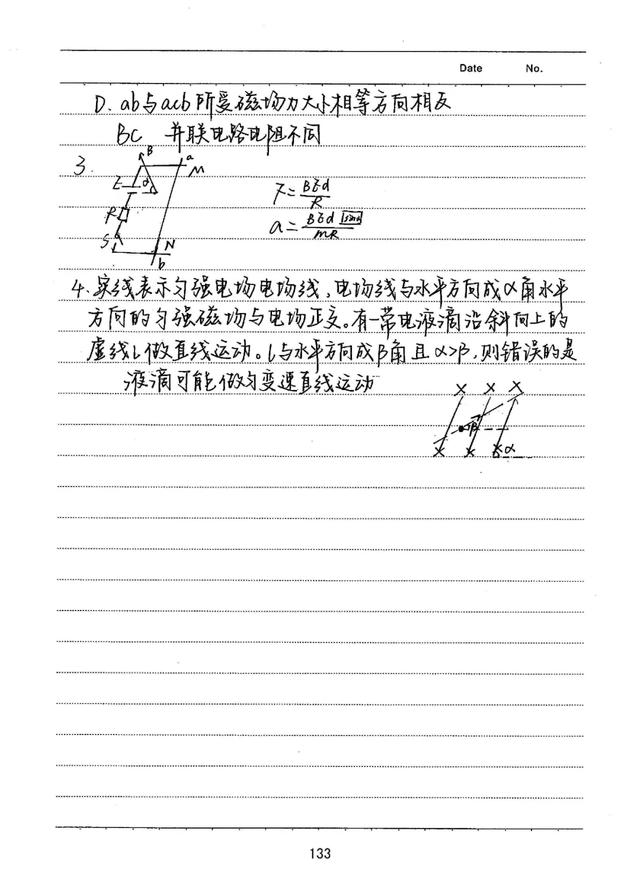 Date No.
D. ab与acb所受磁场力大小相等方向相反
BC 并联电路电阻不同
3.
B a
E θ M
R
S N
b
F=BEd/R
a=BEd sinθ/mR
4. 实线表示匀强电场电场线，电场线与水平方向成α角水平
方向的匀强磁场与电场正交。有一带电液滴沿斜向上的
虚线L做直线运动。l与水平方向成β角且α>β，则错误的是
液滴可能做匀变速直线运动
× × ×
β
× × × α
133